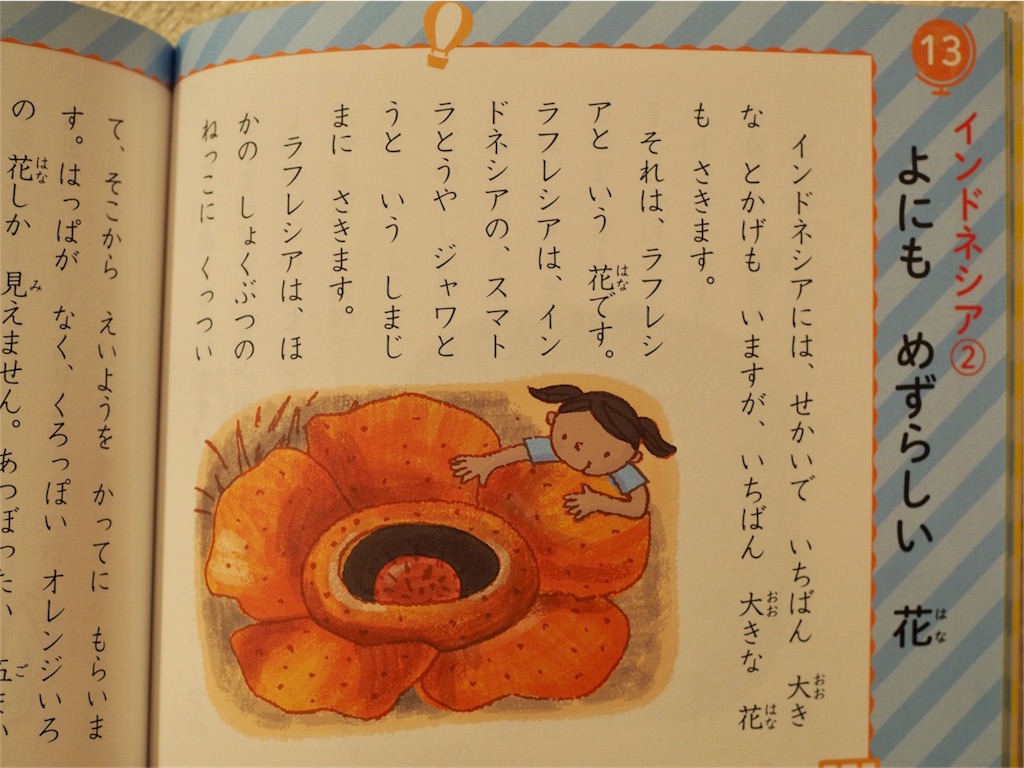 13
インドネシア②
よにも めずらしい 花
はな
インドネシアには、せかいで いちばん 大き
おお
な とかげも いますが、いちばん 大きな 花
おお
はな
も さきます。
それは、ラフレシ
アと いう 花です。
はな
ラフレシアは、イン
ドネシアの、スマト
ラとうや ジャワと
うと いう しまじ
まに さきます。
ラフレシアは、ほ
かの しょくぶつの
ねっこに くっつい
て、そこから えいようを かってに もらいま
す。はっぱが なく、くろっぽい オレンジいろ
の 花しか 見えません。
はな
み